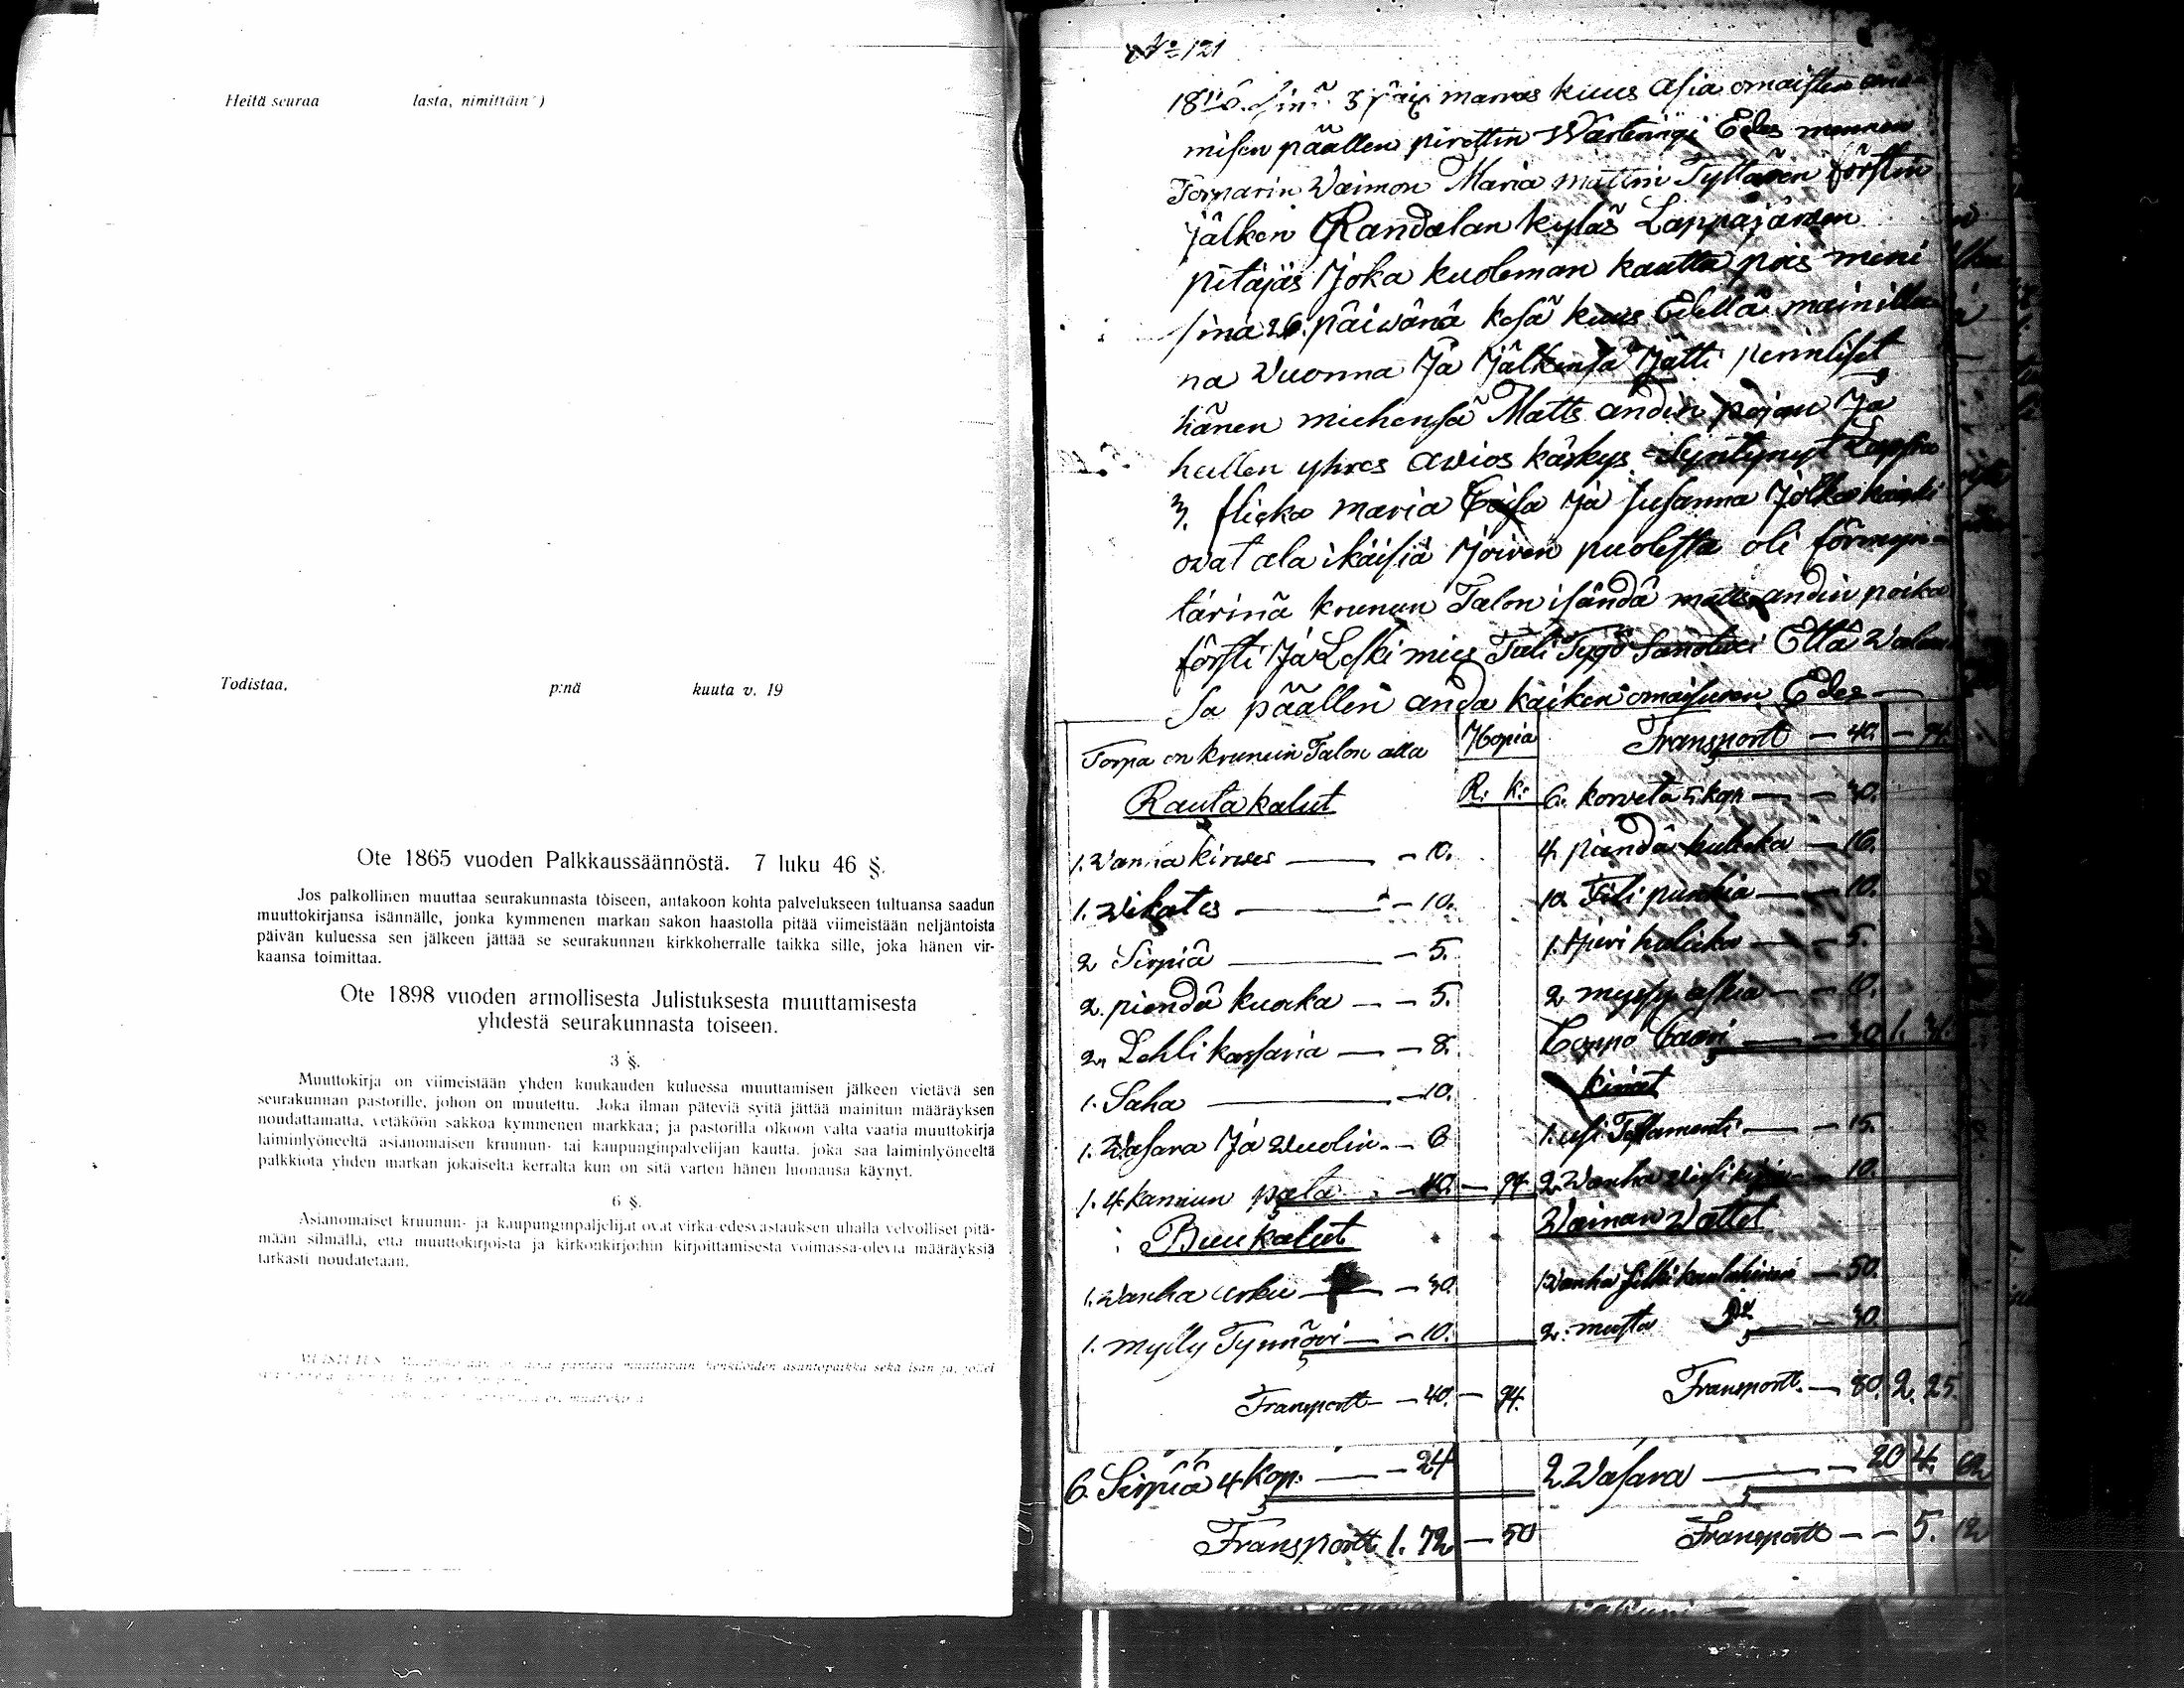 Heitä seuraa lasta, nimittäin*)
Todistaa, p:nä kuuta v. 19
Ote 1865 vuoden Palkkaussäännöstä. 7 luku 46 §.
Jos palkollinen muuttaa seurakunnasta toiseen, antakoon kohta palvelukseen tultuansa saadun
muuttokirjansa isännälle, jonka kymmenen markan sakon haastolla pitää viimeistään neljäntoista
päivän kuluessa sen jälkeen jättää se seurakunnan kirkkoherralle taikka sille, joka hänen vir-
kaansa toimittaa.
Ote 1898 vuoden armollisesta Julistuksesta muuttamisesta
yhdestä seurakunnasta toiseen.
3 §.
Muuttokirja on viimeistään yhden kuukauden kuluessa muuttamisen jälkeen vietävä sen
seurakunnan pastorille, johon on muutettu. Joka ilman päteviä syitä jättää mainitun määräyksen
noudattamatta, vetäköön sakkoa kymmenen markkaa; ja pastorilla olkoon valta vaatia muuttokirja
laiminlyöneeltä asianomaisen kruunun- tai kaupunginpalvelijan kautta, joka saa laiminlyöneeltä
palkkiota yhden markan jokaiselta kerralta kun on sitä varten hänen luonansa käynyt.
6 §.
Asianomaiset kruunun- ja kaupunginpaljelijat ovat virka-edesvastauksen uhalla velvolliset pitä-
mään silmällä, että muuttokirjoista ja kirkonkirjoihin kirjoittamisesta voimassa-olevia määräyksiä
tarkasti noudatetaan.
No 121
3 päiv marras kuus Asia omaisten
misen päällen pirettin Wärteringi Edes mennen
Torparin Waimon Maria Mattin Tyttären förstin
jälken Randalan kyläs Lappajärwen
pitäjäs Joka kuoleman kautta pois meni
sinä 26. päiwänä kesä kuus Edellä mainittu
na Wuonna Ja Jälkensä Jätti perinliset
hänen miehensä Matts andin pojan Ja
heillen yhres awios käskys Syntynyt Lapsta
3. flicka Maria Caisa Ja Susanna Jotka kaicki
owat ala ikäisiä Joiren puolesta oli förmyn-
tärinä krunun Talon isändä matts andin poika
försti Ja Leski mies Tuli Tygö Sanotuxi Että Walan
Sa päällen anda kaiken omaisuren Edes
Torpa on krunun Talon alla Hopia Transportt — 40. — 94.
Rauta kalut R: k:
6. korweta 5 kop — — 30.
1. Wanha kirwes — — 10.
4. piendä hulicka — 16.
1. Wikates — — 10.
10. Fili punkia — — 10.
2 Sirpiä — — 5.
1. Juuri hulicka — — 5.
2. piendä kuocka — — 5.
2. myssy astia — — 10.
2. Lehli kassaria — — 8.
— 30. 1. 31.
1. Saha — — 10.
kirjat
1. Wasara Ja Wuolin — 6
1. usi Testamenti — — 15.
1. 4. kannun pata — 40. — 94
2. Wanha — 10.
Puu kalut
Waimon Wattet
1. Wanha arku — — 30.
1 Wanha silki kaulahuiwi — 50.
1. mylly Tynnöri — — 10.
2. musta — 30.
Transportt — 40. — 94.
Transportt — 80. 2. 25.
6. Sirpiä 4 kop. — — 24
2 Wasara — — 20 4. 62
Transportt 1. 72 — 50
Transportt — — 5. 12